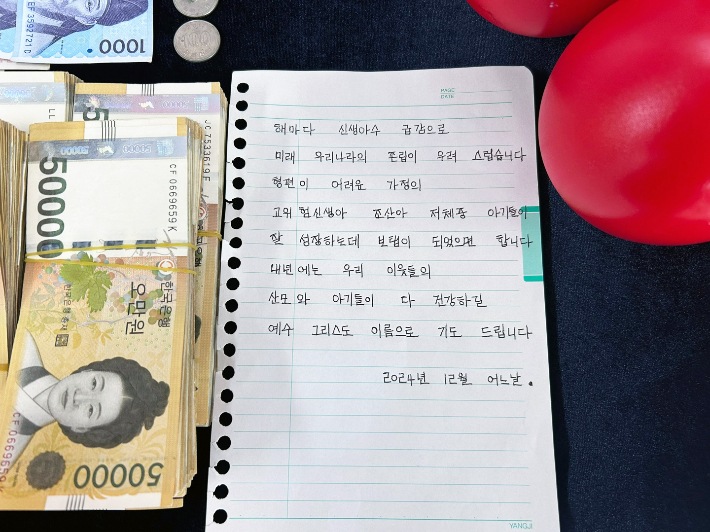 EF 3592721 D
1000
100
JC 7533619 F
CF 0669659 K
50000
50000
한국은행
오만원
한국은행 총재
CF 0669659 K
50000
PAGE
DATE
해마다 신생아수 급감으로
미래 우리나라의 존립이 우려 스럽습니다
형편이 어려운 가정의
고위험신생아 조산아 저체중 아기들이
잘 성장하는데 보탬이 되었으면 합니다
내년에는 우리 이웃들의
산모와 아기들이 다 건강하길
예수 그리스도 이름으로 기도 드립니다
2024년 12월 어느날.
YANGJI